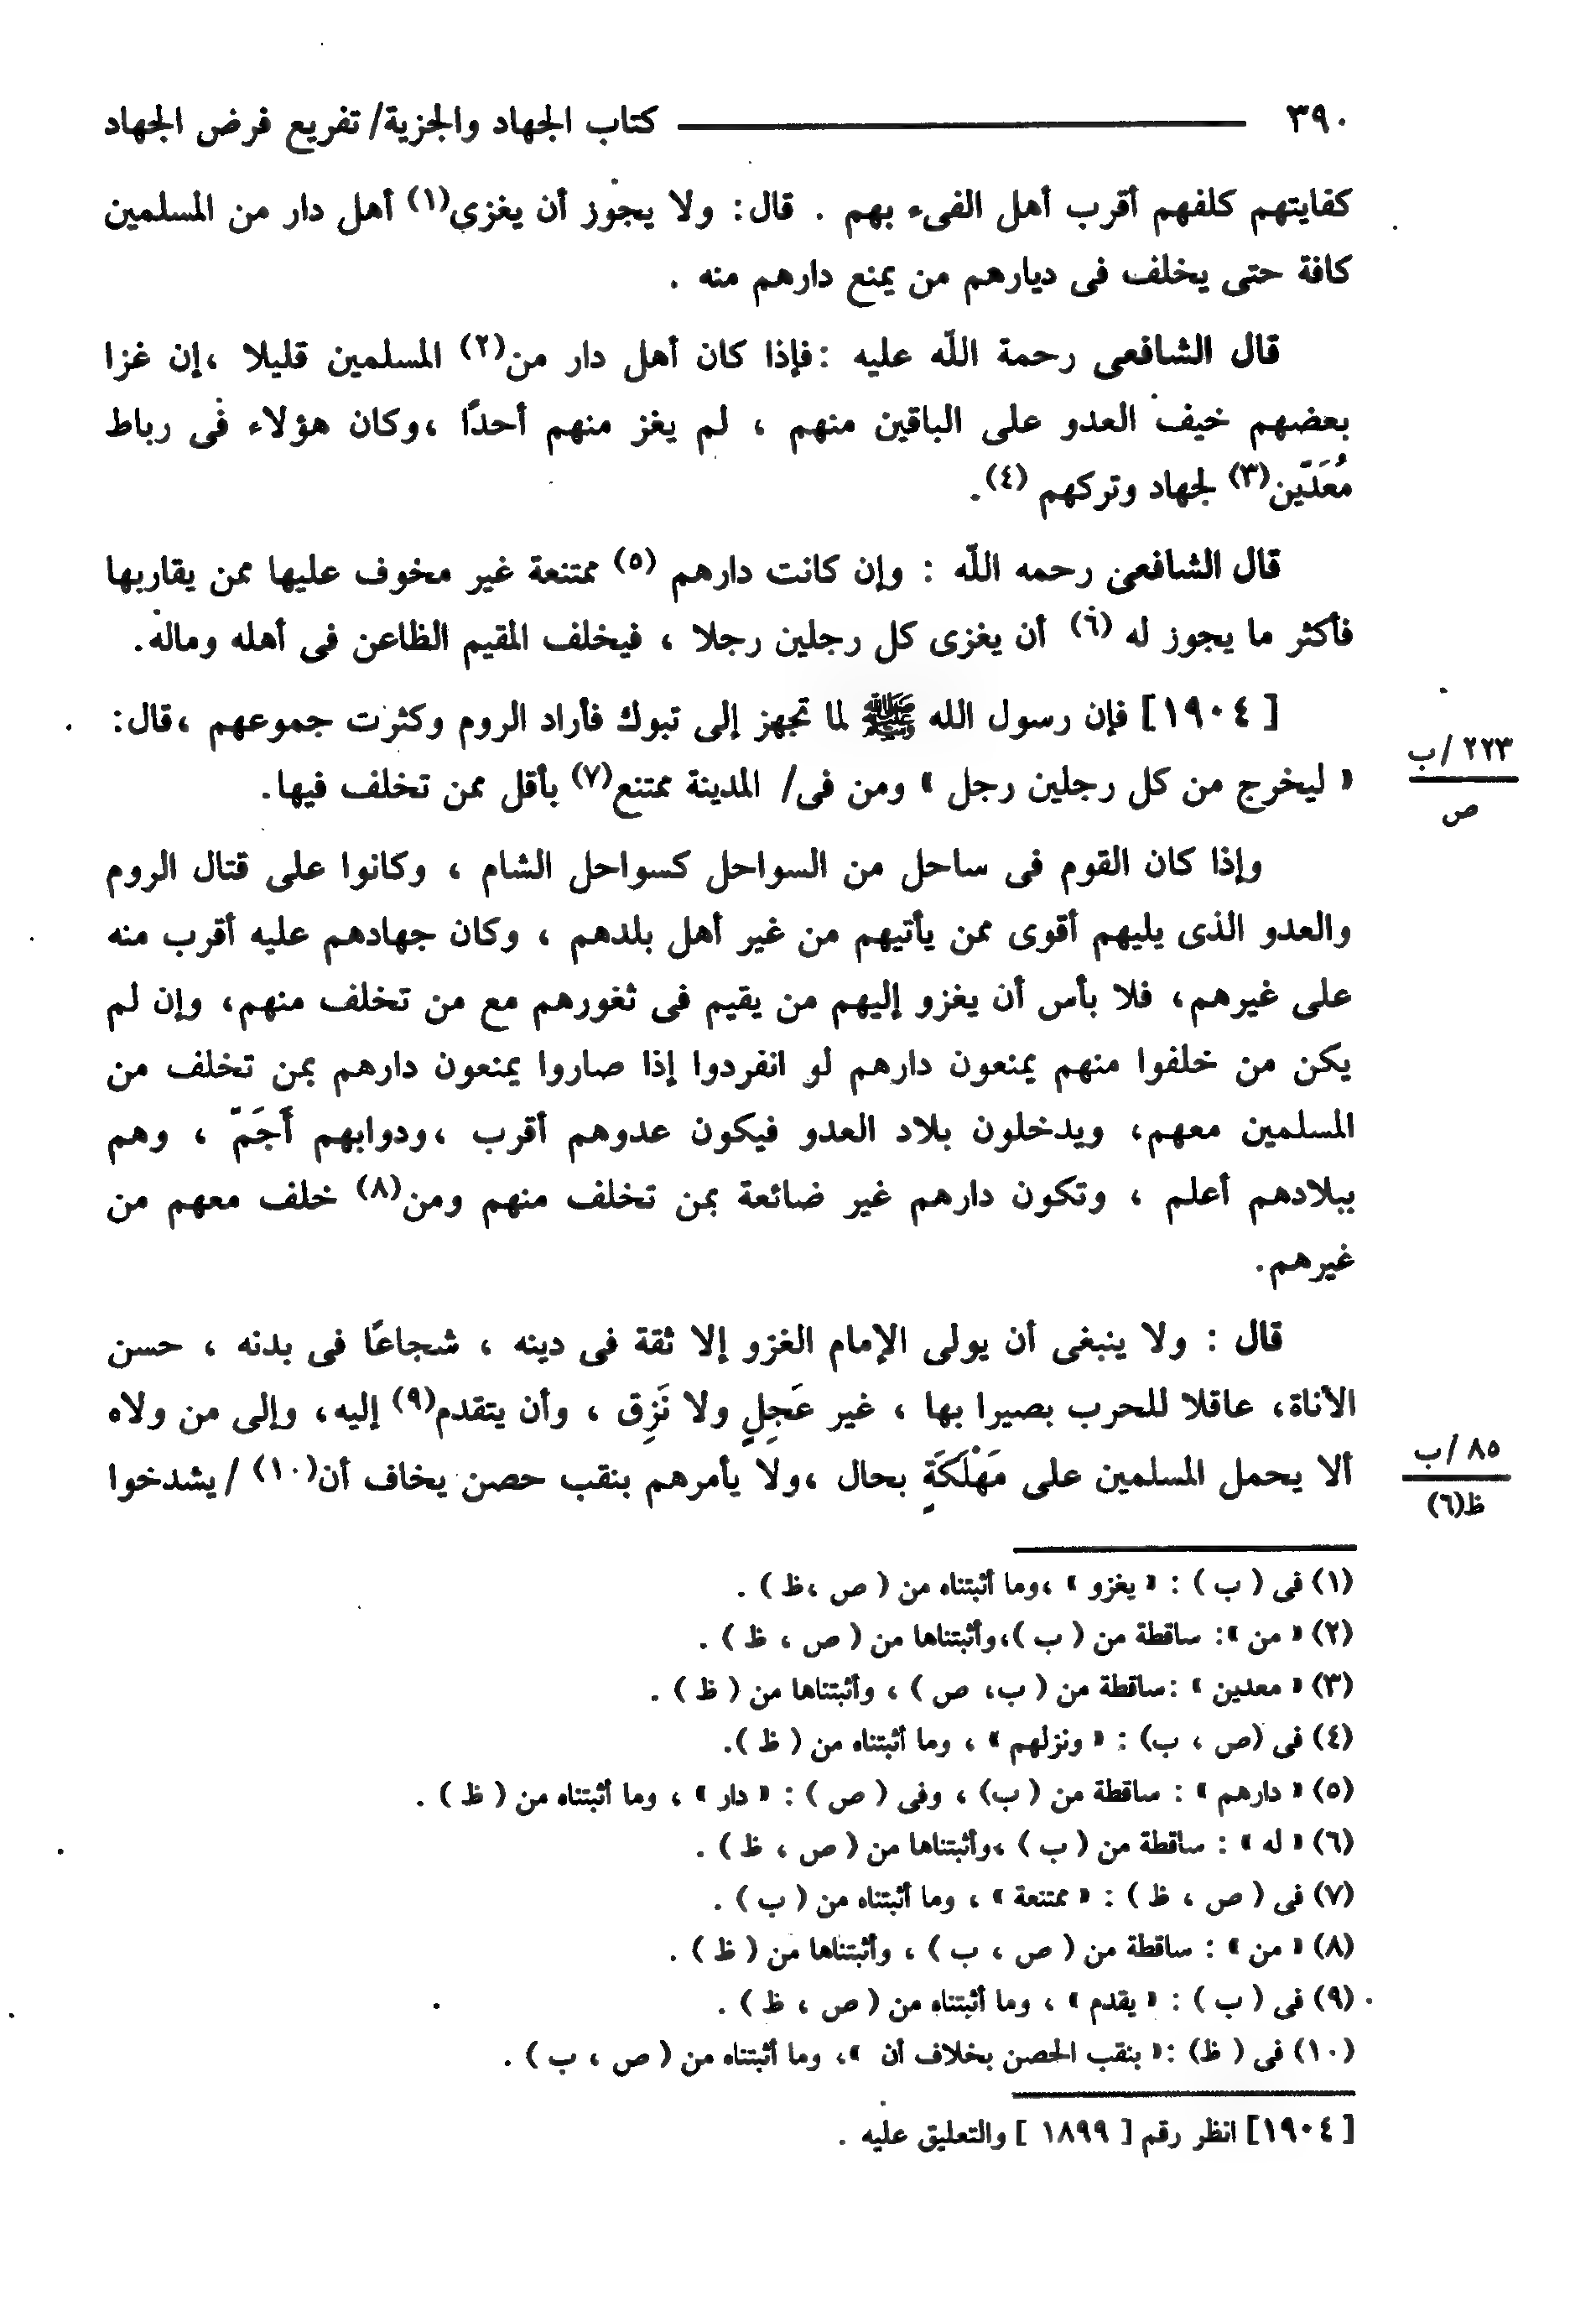 ٣٩٠ ــــــــــــ كتاب الجهاد والجزية/ تفريع فرض الجهاد
كفايتهم كلفهم أقرب أهل الفىء بهم . قال: ولا يجوز أن يغزى(١) أهل دار من المسلمين
كافة حتى يخلف فى ديارهم من يمنع دارهم منه .
قال الشافعى رحمة اللّه عليه :فإذا كان أهل دار من(٢) المسلمين قليلا ،إن غزا
بعضهم خيف العدو على الباقين منهم ، لم يغز منهم أحدًا ،وكان هؤلاء فى رباط
مُعَدّين(٣) لجهاد وتركهم (٤).
قال الشافعى رحمه اللّه : وإن كانت دارهم (٥) ممتنعة غير مخوف عليها ممن يقاربها
فأكثر ما يجوز له (٦) أن يغزى كل رجلين رجلا ، فيخلف المقيم الظاعن فى أهله وماله.
[ ١٩٠٤] فإن رسول الله ﷺ لما تجهز إلى تبوك فأراد الروم وكثرت جموعهم ،قال:
٢٢٣ /ب
« ليخرج من كل رجلين رجل » ومن فى/ المدينة ممتنع(٧) بأقل ممن تخلف فيها.
ص
وإذا كان القوم فى ساحل من السواحل كسواحل الشام ، وكانوا على قتال الروم
والعدو الذى يليهم أقوى ممن يأتيهم من غير أهل بلدهم ، وكان جهادهم عليه أقرب منه
على غيرهم، فلا بأس أن يغزو إليهم من يقيم فى ثغورهم مع من تخلف منهم، وإن لم
يكن من خلفوا منهم يمنعون دارهم لو انفردوا إذا صاروا يمنعون دارهم بمن تخلف من
المسلمين معهم، ويدخلون بلاد العدو فيكون عدوهم أقرب ،ودوابهم أَجَمّ ، وهم
ببلادهم أعلم ، وتكون دارهم غير ضائعة بمن تخلف منهم ومن(٨) خلف معهم من
غيرهم.
قال : ولا ينبغى أن يولى الإمام الغزو إلا ثقة فى دينه ، شجاعًا فى بدنه ، حسن
الأناة، عاقلا للحرب بصيرا بها ، غير عَجِلٍ ولا نَزِق ، وأن يتقدم(٩) إليه، وإلى من ولاه
٨٥ /ب
ألا يحمل المسلمين على مَهْلَكَةٍ بحال ،ولا يأمرهم بنقب حصن يخاف أن(١٠) /يشدخوا
ظ(٦)
(١) فى ( ب ) : « يغزو » ،وما أثبتناه من ( ص ،ظ ) .
(٢) « من »: ساقطة من ( ب )،وأثبتناها من ( ص ، ظ ) .
(٣) « معدين » :ساقطة من ( ب، ص ) ، وأثبتناها من ( ظ ) .
(٤) فى (ص ، ب) : « ونزلهم » ، وما أثبتناه من ( ظ ).
(٥) « دارهم » : ساقطة من ( ب) ، وفى ( ص ) : « دار » ، وما أثبتناه من ( ظ ) .
(٦) « له » : ساقطة من ( ب ) ،وأثبتناها من ( ص ، ظ ) .
(٧) فى ( ص ، ظ ) : « ممتنعة » ، وما أثبتناه من ( ب ) .
(٨) « من » : ساقطة من ( ص ، ب ) ، وأثبتناها من ( ظ ) .
(٩) فى ( ب ) : « يقدم » ، وما أثبتناه من ( ص ، ظ ) .
(١٠) فى ( ظ) :« بنقب الحصن بخلاف أن »، وما أثبتناه من ( ص ، ب ) .
[ ١٩٠٤] انظر رقم [ ١٨٩٩ ] والتعليق عليه .